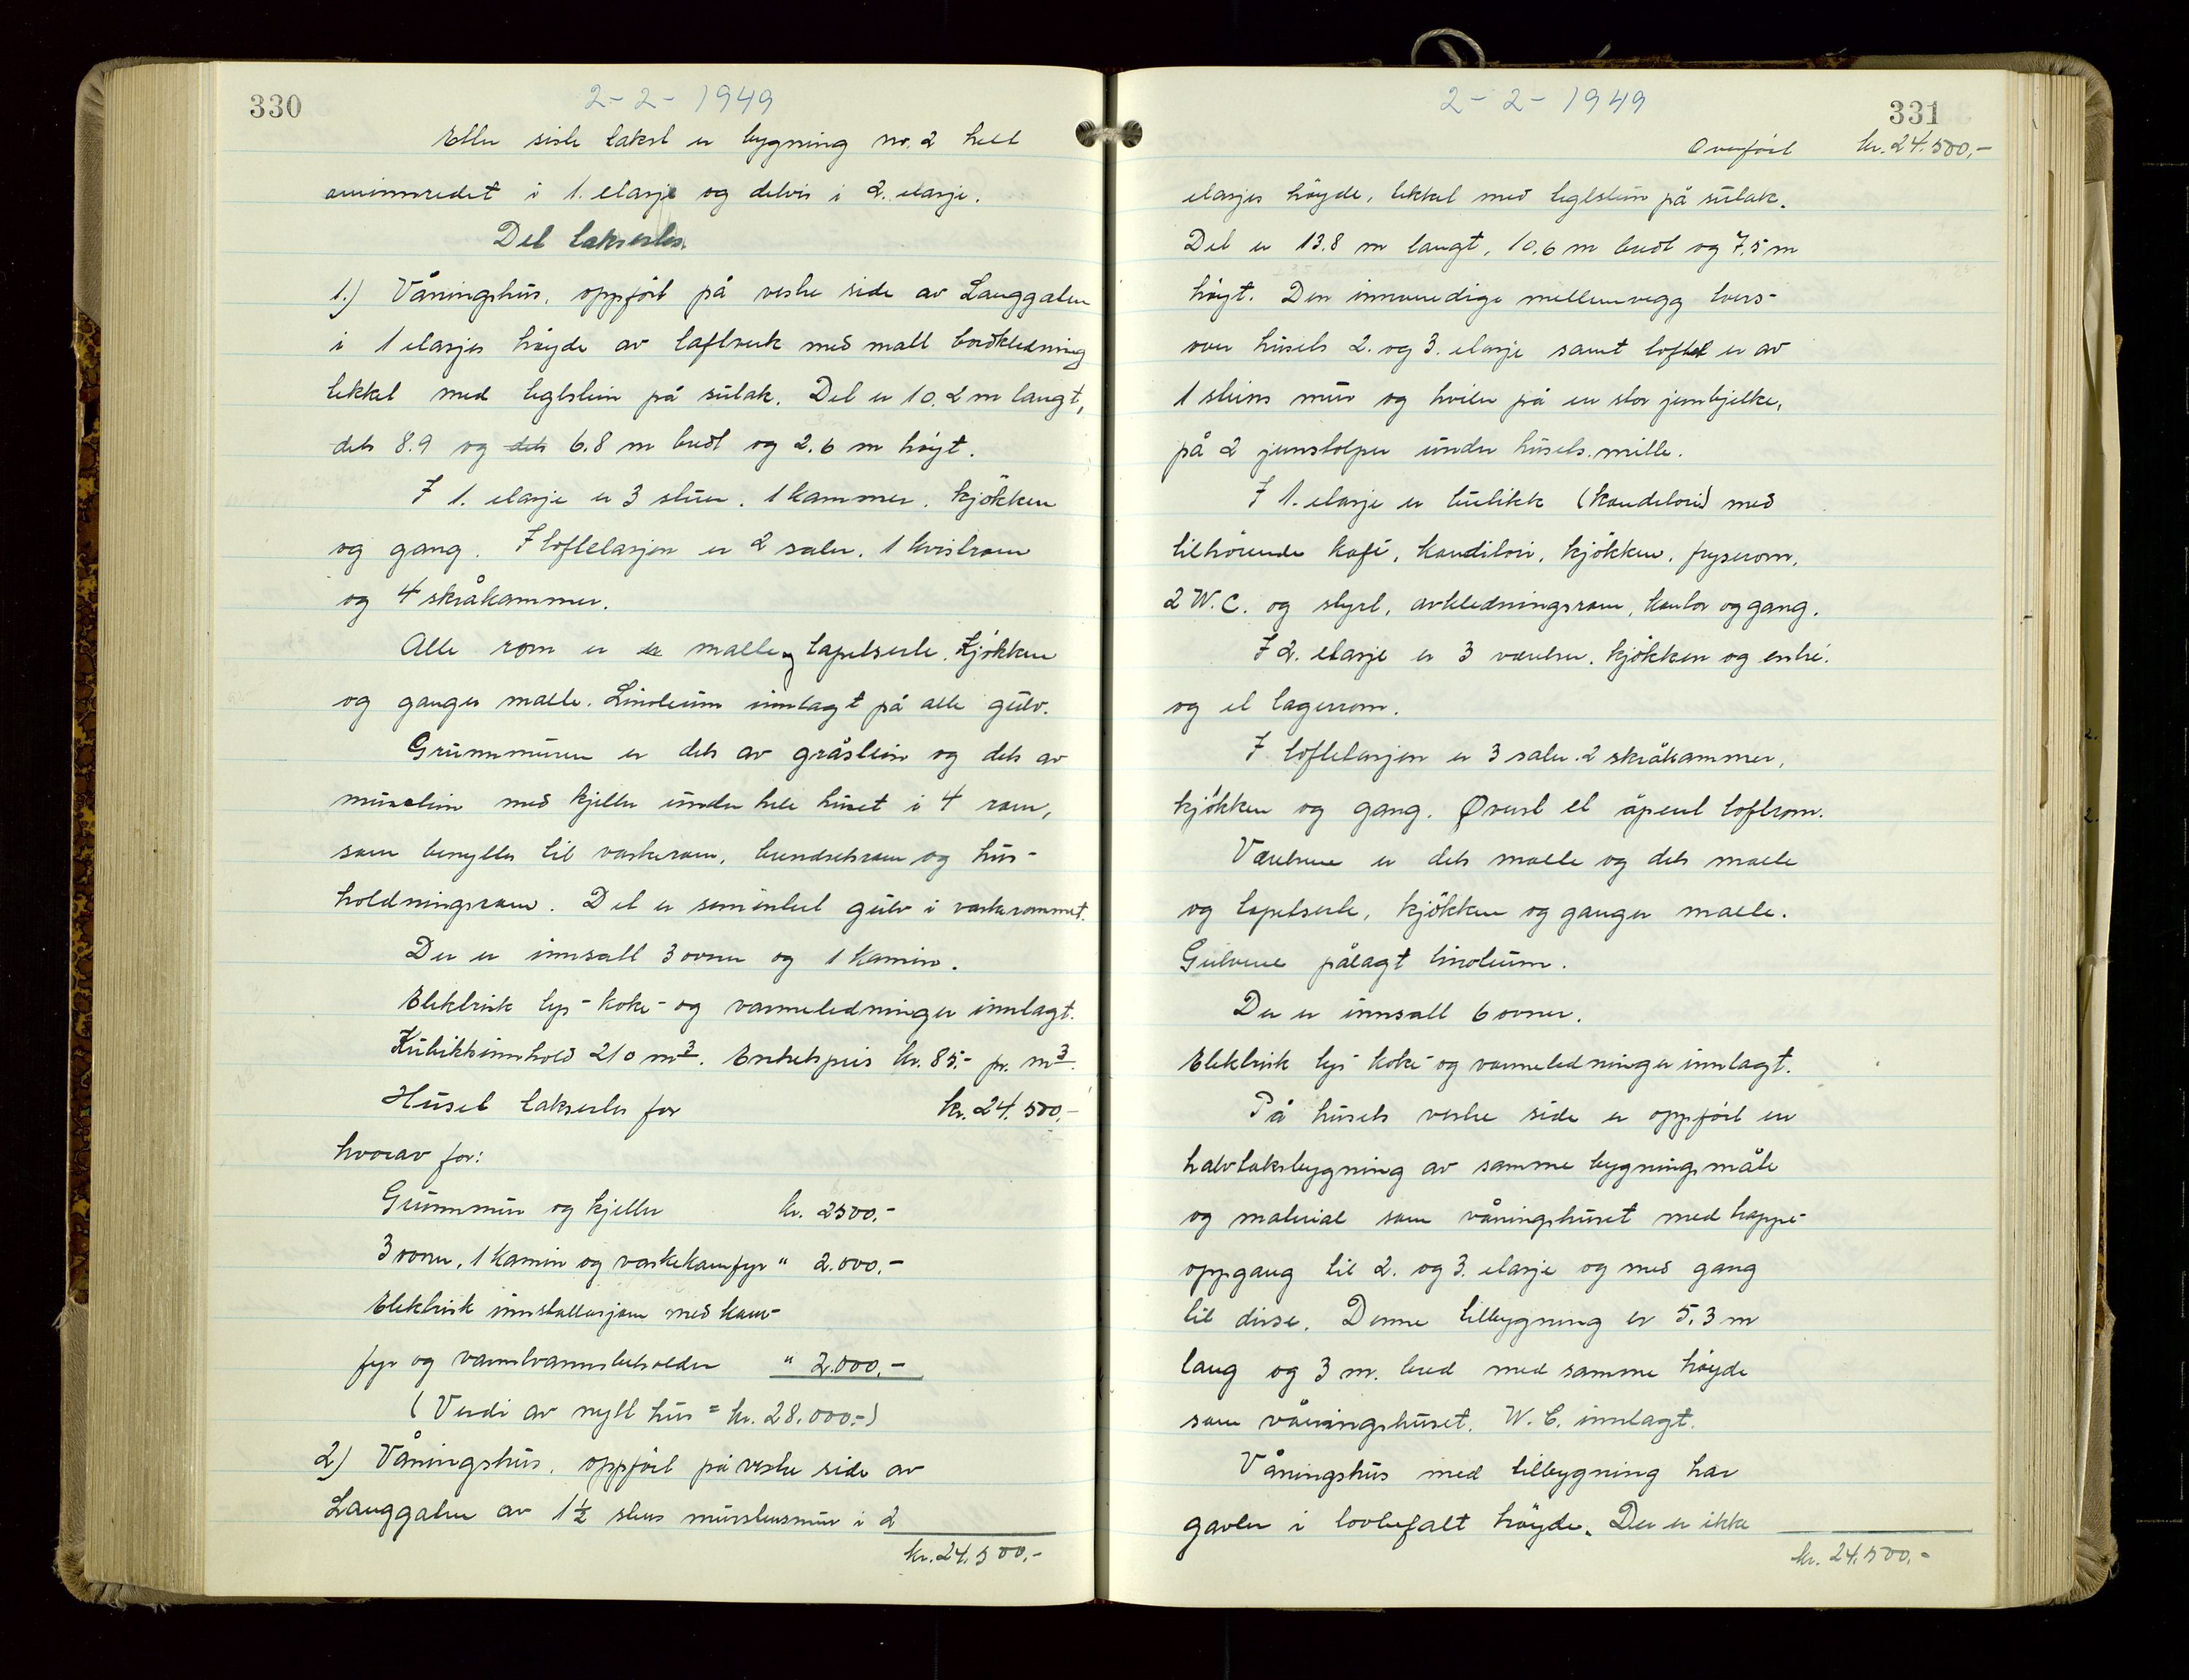 330
2-2-1949
Etter siste takst er bygning nr. 2 helt
ominnredet i 1. etasje og delvis i 2. etasje.
Det takseres.
1.) Våningshus, oppført på vestre side av Langgaten
i 1 etasjes høyde av lafteverk med malt bordkledning
tekket med teglstein på sutak. Det er 10.2 m langt,
dels 8.9 og dels 6.8 m bredt og 2.6 m høyt.
I 1. etasje er 3 stuer, 1 kammer, kjøkken
og gang. I loftetasjen er 2 saler, 1 kvistrom
og 4 skråkammer.
Alle rom er malte og tapetserte, kjøkken
og ganger malte. Linoleum innlagt på alle gulv.
Grunnmuren er dels av gråstein og dels av
murstein med kjeller under hele huset i 4 rom,
som benyttes til vaskerom, brendselsrom og hus-
holdningsrom. Det er sementert gulv i vaskerommet.
Der er innsatt 3 ovner og 1 kamin.
Elektrisk lys- koke- og varmeledninger innlagt.
Kubikkinnhold 210 m3. Enhetspris kr. 85.- pr. m3.
Huset takseres for kr. 24.500.-
hvorav for:
Grunnmur og kjeller kr. 2500.-
3 ovner, 1 kamin og vaskekomfyr " 2.000.-
Elektrisk innstallasjon med kom-
fyr og varmtvannsbeholder " 2.000.-
(Verdi av nytt hus = kr. 28.000.-)
2) Våningshus, oppført på vestre side av
Langgaten av 1½ stens murstensmur i 2
kr. 24.500.-
2-2-1949
331
Overført kr. 24.500.-
etasjes høyde, tekket med teglstein på sutak.
Det er 13.8 m langt, 10.6 m bredt og 7.5 m
høyt. Den innvendige mellemvegg tvers-
over husets 2. og 3. etasje samt loftet er av
1 steins mur og hviler på en stor jernbjelke,
på 2 jernstolper under husets midte.
I 1. etasje er butikk (konditori) med
tilhørende kafé, konditori, kjøkken, fryserom,
2 W.C. og styrt, avkledningsrom, kontor og gang.
I 2. etasje er 3 værelser, kjøkken og entré.
og et lagerrom.
I loftetasjen er 3 saler, 2 skråkammer,
kjøkken og gang. Øverst et åpent loftrom.
Værelsene er dels malte og dels malte
og tapetserte, kjøkken og ganger malte.
Gulvene pålagt linoleum.
Der er innsatt 6 ovner.
Elektrisk lys- koke- og varmeledninger innlagt.
På husets vestre side er oppført en
halvtaksbygning av samme bygningsmåte
og material som våningshuset med trappe-
oppgang til 2. og 3. etasje og med gang
til disse. Denne tilbygning er 5.3 m
lang og 3 m. bred med samme høyde
som våningshuset. W.C. innlagt.
Våningshus med tilbygning har
gavler i lovbefalt høyde. Der er ikke
kr. 24.500.-